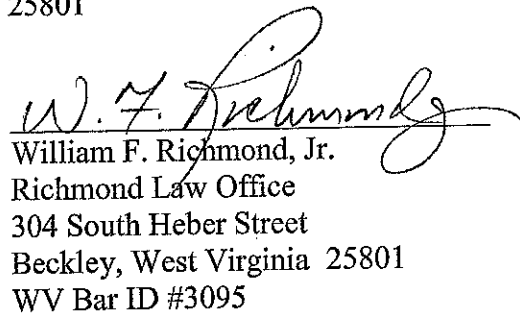 25801
W. F. Richmond Jr
William F. Richmond, Jr.
Richmond Law Office
304 South Heber Street
Beckley, West Virginia 25801
WV Bar ID #3095